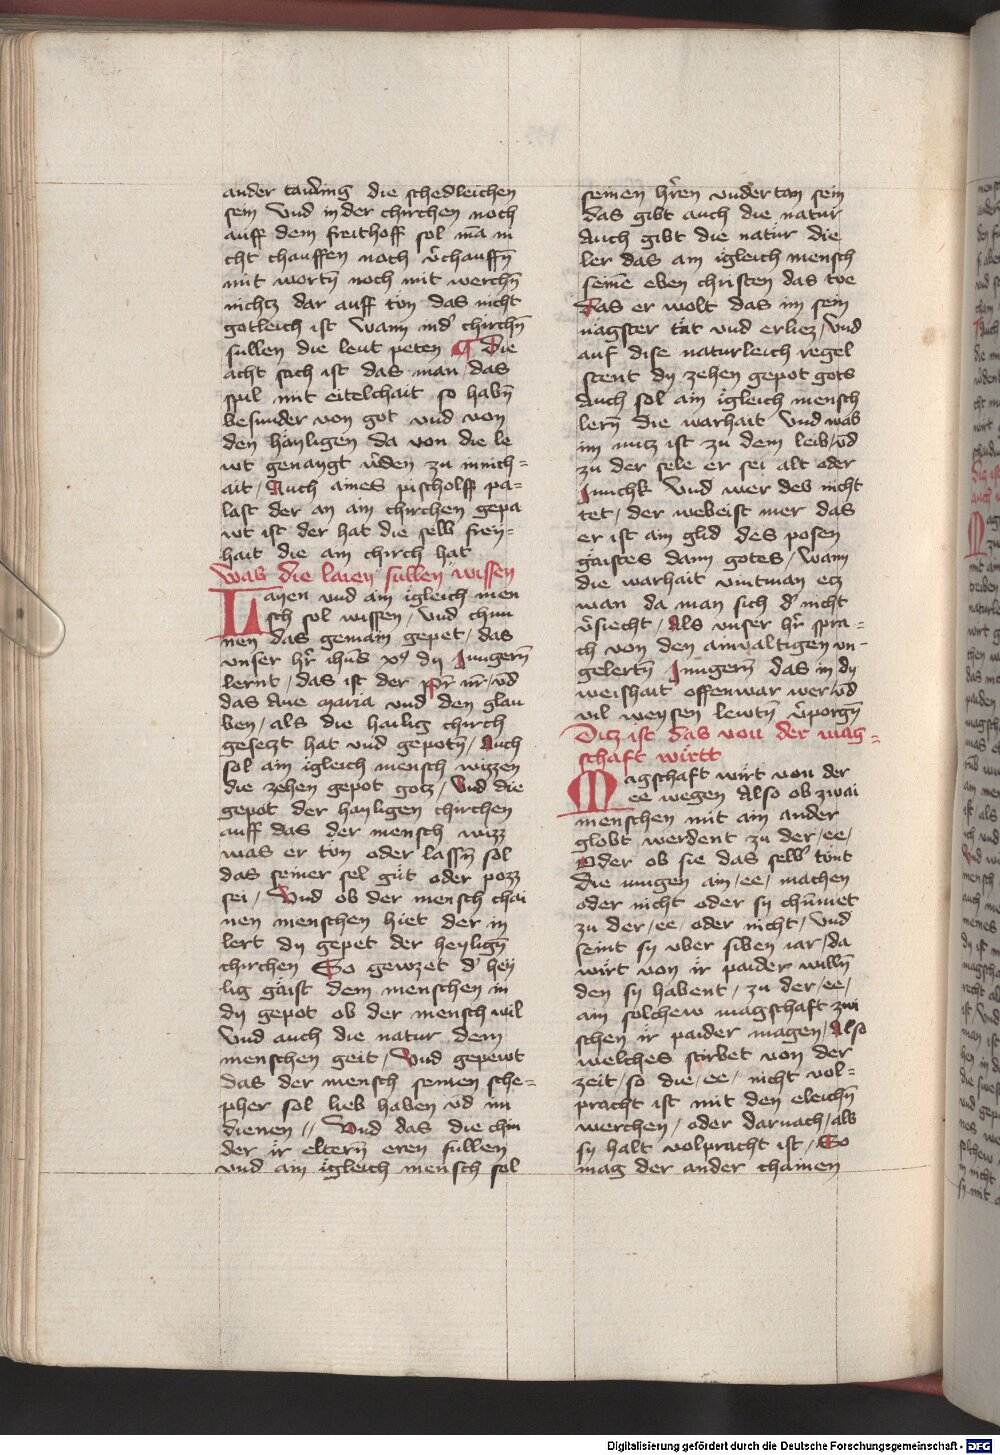 ander tauding die schedleichen
sein Vnd in der chirchen noch
auff dem freithoff sol mā ni
cht chauffen noch v̄chauffn̄
mit wortn̄ noch mit werchn̄
nichtz dar auff tün das nicht
gotleich ist Wann ind' chirchn̄
sullen die leut peten ¶ Die
acht sach ist das man das
spil mit eitelchait so habn̄
besunder von got vnd von
den häyligen da von die le
wt genaygt w̄den zu innich=
ait / Auch aines pischolff pa=
last der an ain chirchen gepa
wt ist der hat die selb frey=
hait die ain chirch hat
Was die laien sullen wissen
Layen vnd ain igleich men
sch sol wissen / Vnd chun
nen das gemain gepet / das
vnser hr̄ ihūs xp̄ dy Jungern̄
lernt / das ist der pr̄ nr̄ / vn̄d
das Aue maria vnd den glau
ben / als die hailig chirch
gesetzt hat vnd gepotn̄ / Auch
sol ain igleich mensch wizzen
die zehen gepot gotz / Vnd die
gepot der hayligen chirchen
auff das der mensch wizz
was er tün oder lassn̄ sol
das seiner sel güt oder pozz
sei / Vnd ob der mensch chai
nen menschen hiet der in
lert dy gepet der heylign̄
chirchen So gewzet d' hey
lig gäist dem menschen in
dy gepot ob der mensch wil
Vnd auch die natur dem
menschen geit / Vnd gepewt
das der mensch seinen sche=
pher sol lieb haben vn̄d im
dienen // Vnd das die chin
der ir eltern̄ eren sullen
vnd ain igleich mensch sol
seinen hr̄en vndertan sein
das gibt auch die natur
Auch gibt die natur die
ler das ain igleich mensch
seinē eben christen das tue
Das er wolt das im sein
nägster tät vnd erliez / Vnd
auf dise naturleich regel
stent dy zehen gepot gots
Auch sol ain igleich mensch
lern̄ die warhait Vnd was
im nutz ist zu dem leib / vn̄d
zu der sele er sei alt oder
Junchk Vnd wer des nicht
tet / der webeist mer das
er ist ain glid des posen
gäistes dann gotes / Wann
die warhait vintman etz
wan da man sich d' nicht
v̄siecht / Als vnser hr̄ spra=
ch von den ainvaltigen vn=
gelertn̄ Jungern̄ das in dy
weishait offenwar wer / vn̄d
vil weysen lewtn̄ v̄porgn̄
Ditz ist das von der mag=
schaft wirtt
Magschaft wirt von der
ee wegen Also ob zwai
menschen mit ain ander
globt werdent zu der / ee /
Oder ob sie das selb' tünt
die mügen ain / ee / machen
oder nicht oder sy chūmet
zu der / ee / oder nicht / Vnd
seint sy vber siben iar / da
wirt von ir paider willn̄
den sy habent / zu der / ee /
ain solchew magschaft zwi
schen ir paider magen / Also
welches stirbet von der
zeit / so die / ee / nicht vol=
pracht ist mit den eleichn̄
werchen / oder darnach / als
sy halt volpracht ist / So
mag der ander chainen
Digitalisierung gefördert durch die Deutsche Forschungsgemeinschaft - DFG